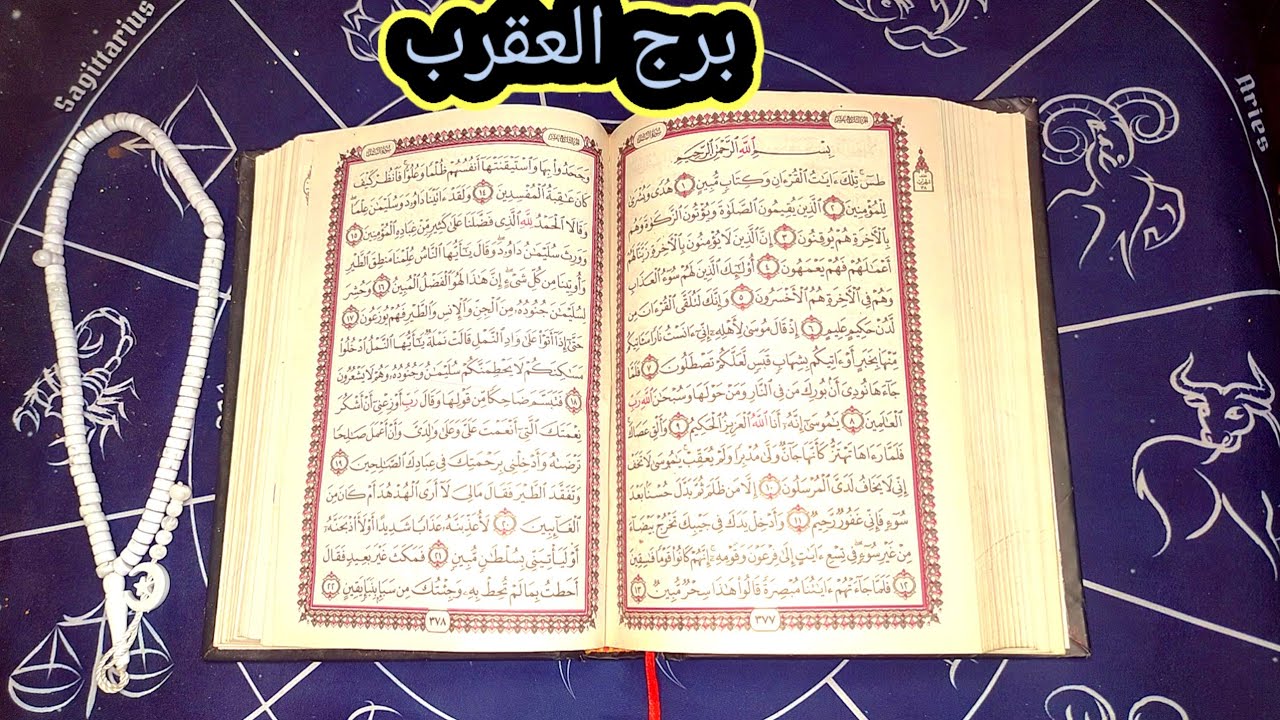 برج العقرب
Sagittarius
Aries
بِسْمِ ٱللَّهِ ٱلرَّحْمَٰنِ ٱلرَّحِيمِ
طسٓ تِلْكَ ءَايَٰتُ ٱلْقُرْءَانِ وَكِتَابٍ مُّبِينٍ ١ هُدًى وَبُشْرَىٰ
لِلْمُؤْمِنِينَ ٢ ٱلَّذِينَ يُقِيمُونَ ٱلصَّلَوٰةَ وَيُؤْتُونَ ٱلزَّكَوٰةَ وَهُم
بِٱلْءَاخِرَةِ هُمْ يُوقِنُونَ ٣ إِنَّ ٱلَّذِينَ لَا يُؤْمِنُونَ بِٱلْءَاخِرَةِ زَيَّنَّا لَهُمْ
أَعْمَٰلَهُمْ فَهُمْ يَعْمَهُونَ ٤ أُو۟لَٰٓئِكَ ٱلَّذِينَ لَهُمْ سُوٓءُ ٱلْعَذَابِ
وَهُمْ فِى ٱلْءَاخِرَةِ هُمُ ٱلْأَخْسَرُونَ ٥ وَإِنَّكَ لَتُلَقَّى ٱلْقُرْءَانَ مِن
لَّدُنْ حَكِيمٍ عَلِيمٍ ٦ إِذْ قَالَ مُوسَىٰ لِأَهْلِهِۦٓ إِنِّىٓ ءَانَسْتُ نَارًا سَـَٔاتِيكُم
مِّنْهَا بِخَبَرٍ أَوْ ءَاتِيكُم بِشِهَابٍ قَبَسٍ لَّعَلَّكُمْ تَصْطَلُونَ ٧ فَلَمَّا
جَآءَهَا نُودِىَ أَنۢ بُورِكَ مَن فِى ٱلنَّارِ وَمَنْ حَوْلَهَا وَسُبْحَٰنَ ٱللَّهِ رَبِّ
ٱلْعَٰلَمِينَ ٨ يَٰمُوسَىٰٓ إِنَّهُۥٓ أَنَا ٱللَّهُ ٱلْعَزِيزُ ٱلْحَكِيمُ ٩ وَأَلْقِ عَصَاكَ
فَلَمَّا رَءَاهَا تَهْتَزُّ كَأَنَّهَا جَآنٌّ وَلَّىٰ مُدْبِرًا وَلَمْ يُعَقِّبْ يَٰمُوسَىٰ لَا تَخَفْ
إِنِّى لَا يَخَافُ لَدَىَّ ٱلْمُرْسَلُونَ ١٠ إِلَّا مَن ظَلَمَ ثُمَّ بَدَّلَ حُسْنًۢا بَعْدَ
سُوٓءٍ فَإِنِّى غَفُورٌ رَّحِيمٌ ١١ وَأَدْخِلْ يَدَكَ فِى جَيْبِكَ تَخْرُجْ بَيْضَآءَ
مِنْ غَيْرِ سُوٓءٍ فِى تِسْعِ ءَايَٰتٍ إِلَىٰ فِرْعَوْنَ وَقَوْمِهِۦٓ إِنَّهُمْ كَانُوا۟ قَوْمًا فَٰسِقِينَ
١٢ فَلَمَّا جَآءَتْهُمْ ءَايَٰتُنَا مُبْصِرَةً قَالُوا۟ هَٰذَا سِحْرٌ مُّبِينٌ ١٣
٣٧٧
وَجَحَدُوا۟ بِهَا وَٱسْتَيْقَنَتْهَآ أَنفُسُهُمْ ظُلْمًا وَعُلُوًّا فَٱنظُرْ كَيْفَ
كَانَ عَٰقِبَةُ ٱلْمُفْسِدِينَ ١٤ وَلَقَدْ ءَاتَيْنَا دَاوُۥدَ وَسُلَيْمَٰنَ عِلْمًا
وَقَالَا ٱلْحَمْدُ لِلَّهِ ٱلَّذِى فَضَّلَنَا عَلَىٰ كَثِيرٍ مِّنْ عِبَادِهِ ٱلْمُؤْمِنِينَ ١٥
وَوَرِثَ سُلَيْمَٰنُ دَاوُۥدَ وَقَالَ يَٰٓأَيُّهَا ٱلنَّاسُ عُلِّمْنَا مَنطِقَ ٱلطَّيْرِ
وَأُوتِينَا مِن كُلِّ شَىْءٍ إِنَّ هَٰذَا لَهُوَ ٱلْفَضْلُ ٱلْمُبِينُ ١٦ وَحُشِرَ
لِسُلَيْمَٰنَ جُنُودُهُۥ مِنَ ٱلْجِنِّ وَٱلْإِنسِ وَٱلطَّيْرِ فَهُمْ يُوزَعُونَ ١٧
حَتَّىٰٓ إِذَآ أَتَوْا۟ عَلَىٰ وَادِ ٱلنَّمْلِ قَالَتْ نَمْلَةٌ يَٰٓأَيُّهَا ٱلنَّمْلُ ٱدْخُلُوا۟
مَسَٰكِنَكُمْ لَا يَحْطِمَنَّكُمْ سُلَيْمَٰنُ وَجُنُودُهُۥ وَهُمْ لَا يَشْعُرُونَ
١٨ فَتَبَسَّمَ ضَاحِكًا مِّن قَوْلِهَا وَقَالَ رَبِّ أَوْزِعْنِىٓ أَنْ أَشْكُرَ
نِعْمَتَكَ ٱلَّتِىٓ أَنْعَمْتَ عَلَىَّ وَعَلَىٰ وَٰلِدَىَّ وَأَنْ أَعْمَلَ صَٰلِحًا
تَرْضَىٰهُ وَأَدْخِلْنِى بِرَحْمَتِكَ فِى عِبَادِكَ ٱلصَّٰلِحِينَ ١٩
وَتَفَقَّدَ ٱلطَّيْرَ فَقَالَ مَا لِىَ لَآ أَرَى ٱلْهُدْهُدَ أَمْ كَانَ مِنَ
ٱلْغَآئِبِينَ ٢٠ لَأُعَذِّبَنَّهُۥ عَذَابًا شَدِيدًا أَوْ لَأَا۟ذْبَحَنَّهُۥٓ
أَوْ لَيَأْتِيَنِّى بِسُلْطَٰنٍ مُّبِينٍ ٢١ فَمَكَثَ غَيْرَ بَعِيدٍ فَقَالَ
أَحَطتُ بِمَا لَمْ تُحِطْ بِهِۦ وَجِئْتُكَ مِن سَبَإٍۭ بِنَبَإٍ يَقِينٍ ٢٢
٣٧٨